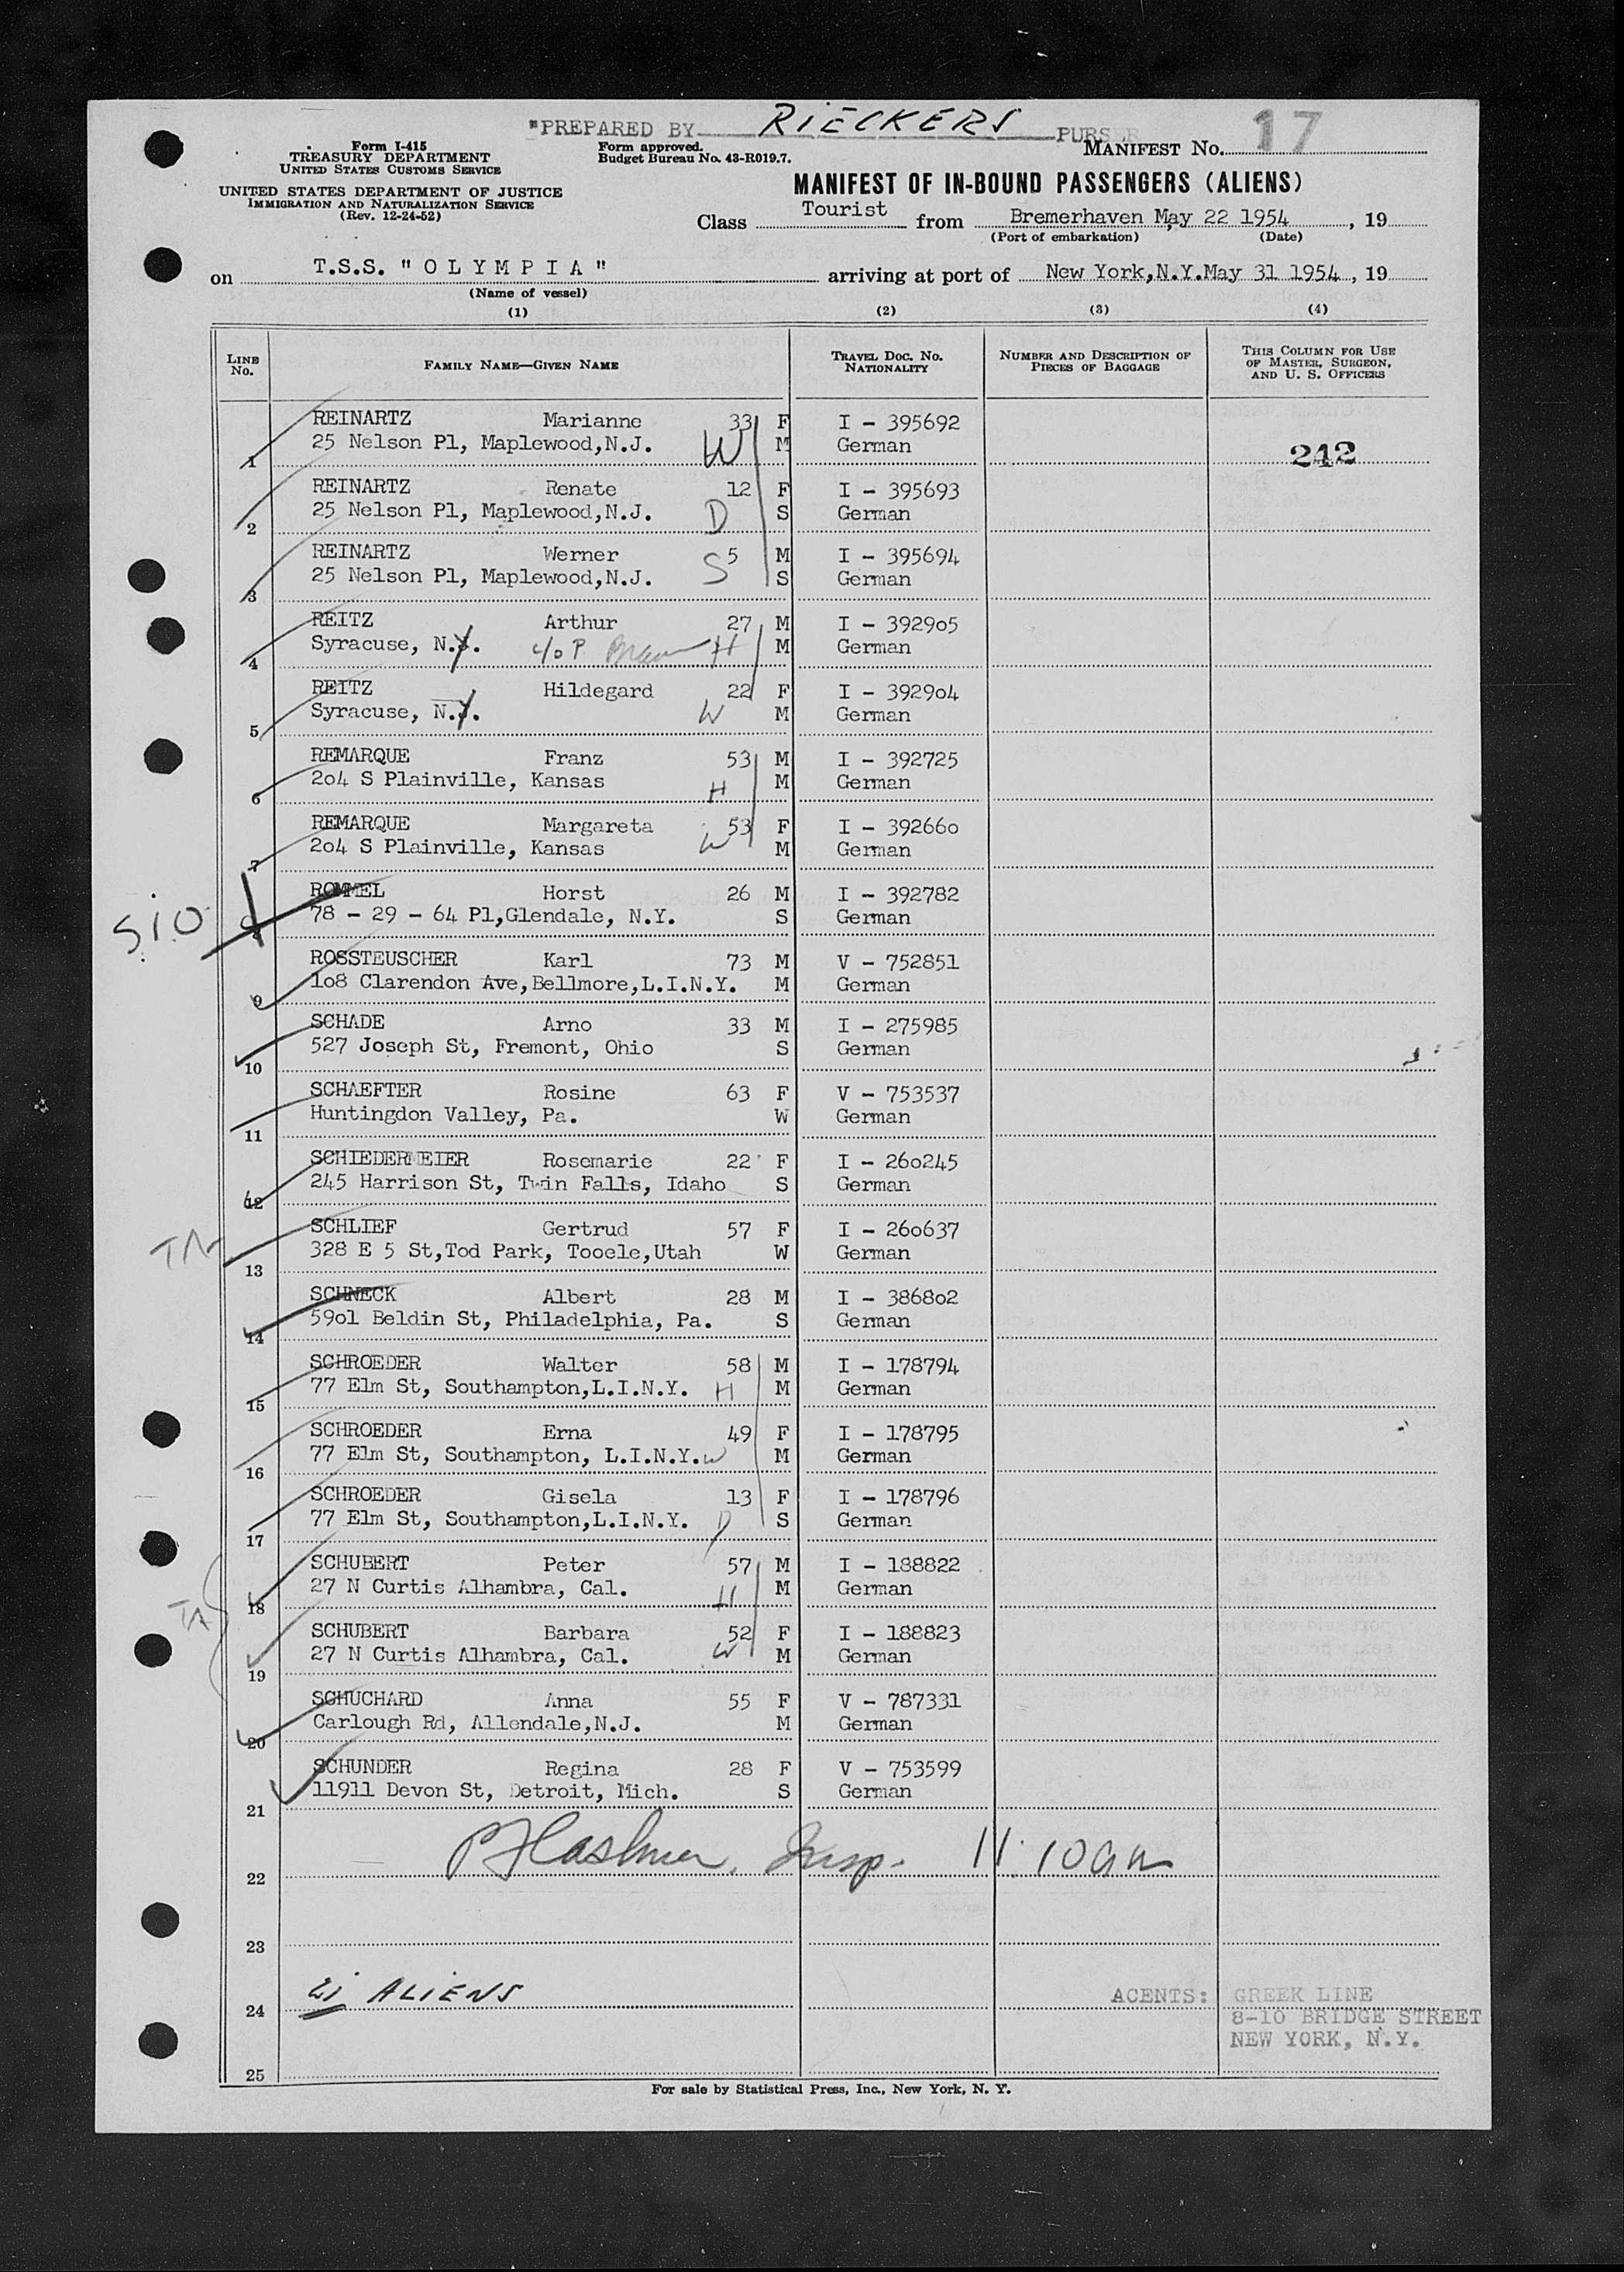 "PREPARED BY RIECKERS PURSER
Form I-415
TREASURY DEPARTMENT
UNITED STATES CUSTOMS SERVICE
UNITED STATES DEPARTMENT OF JUSTICE
IMMIGRATION AND NATURALIZATION SERVICE
(Rev. 12-24-52)
Form approved.
Budget Bureau No. 43-R019.7.
MANIFEST No. 17
MANIFEST OF IN-BOUND PASSENGERS (ALIENS)
Class Tourist from Bremerhaven May 22 1954, 19
(Port of embarkation) (Date)
on T.S.S. "OLYMPIA" arriving at port of New York,N.Y.May 31 1954, 19
(Name of vessel)
(1) (2) (3) (4)
LINE No. FAMILY NAME—GIVEN NAME TRAVEL DOC. No. NATIONALITY NUMBER AND DESCRIPTION OF PIECES OF BAGGAGE THIS COLUMN FOR USE OF MASTER, SURGEON, AND U. S. OFFICERS
REINARTZ Marianne 33 F I - 395692
1 25 Nelson Pl, Maplewood,N.J. W M German 242
REINARTZ Renate 12 F I - 395693
2 25 Nelson Pl, Maplewood,N.J. D S German
REINARTZ Werner 5 M I - 395694
3 25 Nelson Pl, Maplewood,N.J. S S German
REITZ Arthur 27 M I - 392905
4 Syracuse, N.Y. c/o P H M German
REITZ Hildegard 22 F I - 392904
5 Syracuse, N.Y. W M German
REMARQUE Franz 53 M I - 392725
6 204 S Plainville, Kansas H M German
REMARQUE Margareta 53 F I - 392660
7 204 S Plainville, Kansas W M German
ROMMEL Horst 26 M I - 392782
S.I.O. 8 78 - 29 - 64 Pl,Glendale, N.Y. S German
ROSSTEUSCHER Karl 73 M V - 752851
9 108 Clarendon Ave,Bellmore,L.I.N.Y. M German
SCHADE Arno 33 M I - 275985
10 527 Joseph St, Fremont, Ohio S German
SCHAEFTER Rosine 63 F V - 753537
11 Huntingdon Valley, Pa. W German
SCHIEDERMEIER Rosemarie 22 F I - 260245
12 245 Harrison St, Twin Falls, Idaho S German
SCHLIEF Gertrud 57 F I - 260637
13 328 E 5 St,Tod Park, Tooele,Utah W German
SCHNECK Albert 28 M I - 386802
14 5901 Beldin St, Philadelphia, Pa. S German
SCHROEDER Walter 58 M I - 178794
15 77 Elm St, Southampton,L.I.N.Y. H M German
SCHROEDER Erna 49 F I - 178795
16 77 Elm St, Southampton, L.I.N.Y. W M German
SCHROEDER Gisela 13 F I - 178796
17 77 Elm St, Southampton,L.I.N.Y. D S German
SCHUBERT Peter 57 M I - 188822
18 27 N Curtis Alhambra, Cal. H M German
SCHUBERT Barbara 52 F I - 188823
19 27 N Curtis Alhambra, Cal. W M German
SCHUCHARD Anna 55 F V - 787331
20 Carlough Rd, Allendale,N.J. M German
SCHUNDER Regina 28 F V - 753599
21 11911 Devon St, Detroit, Mich. S German
22 Insp. 11:10 am
23
24 21 ALIENS ACENTS: GREEK LINE
8-10 BRIDGE STREET
NEW YORK, N.Y.
25
For sale by Statistical Press, Inc., New York, N. Y.